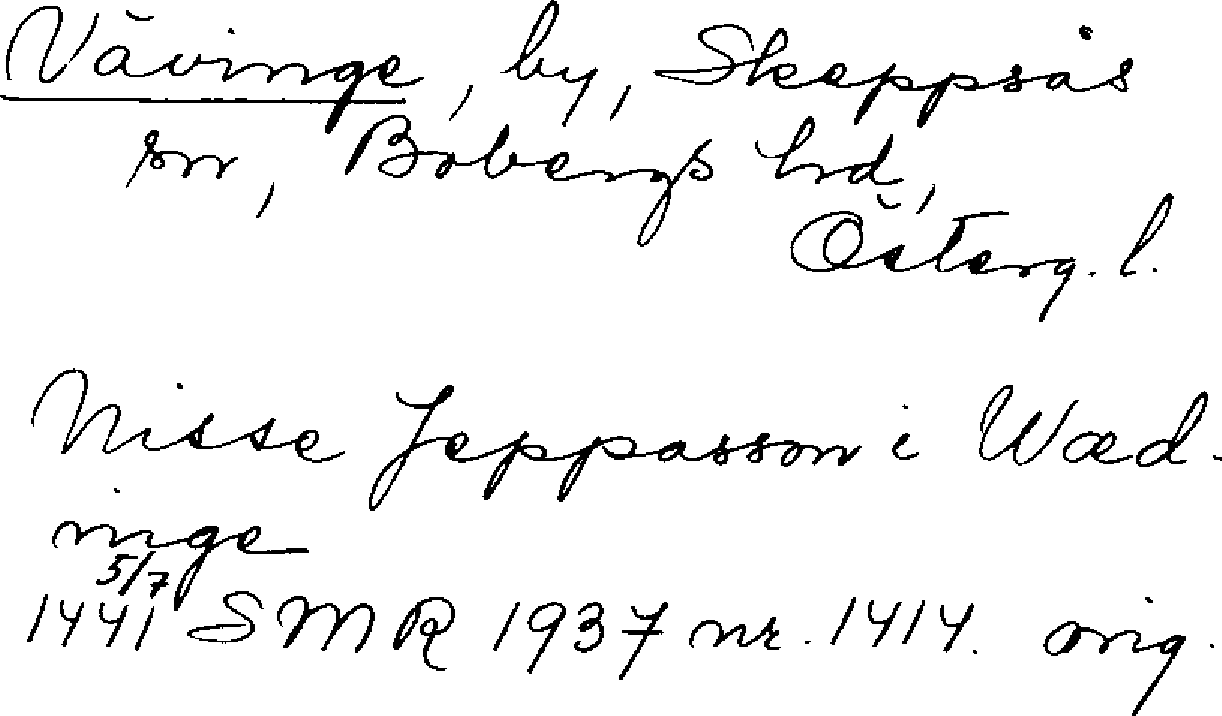 Vävinge, by, Skeppsås
sn, Bobergs hrd,
Österg. l.
Nisse Jeppasson i Wæd-
inge
5/7
1441 SMR 1937 nr. 1414. orig.